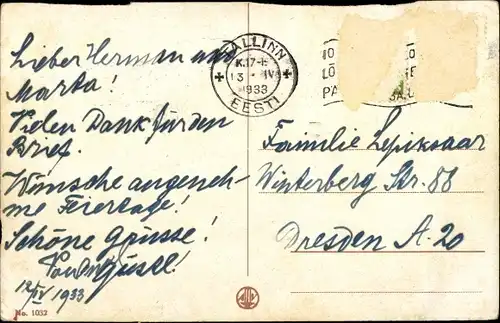 Lieber Herman und
Marta!
Vielen Dank für den
Brief.
Wünsche angeneh-
me Feiertage!
Schöne Grüsse!
Gustl!
12/IV 1933
No. 1032
TALLINN
K.17-
13 IV
1933
EESTI
Familie Lepiksaar
Winterberg Str. 88
Dresden A. 20